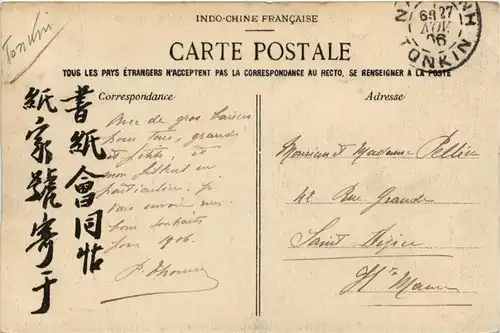 Tonkin
INDO-CHINE FRANÇAISE
CARTE POSTALE
TOUS LES PAYS ÉTRANGERS N'ACCEPTENT PAS LA CORRESPONDANCE AU RECTO, SE RENSEIGNER A LA POSTE
27
NOV
06
TONKIN
Correspondance
Adresse
書紙會同帖
紙家號寄于
Avec de gros baisers
pour tous, grands
et petits, et
mon filleul en
particulier. Je
vais envoyer mes
bons souhaits
pour 1906.
Monsieur et Madame Pellier
42 Rue Grande
Saint Dizier
Hte Marne